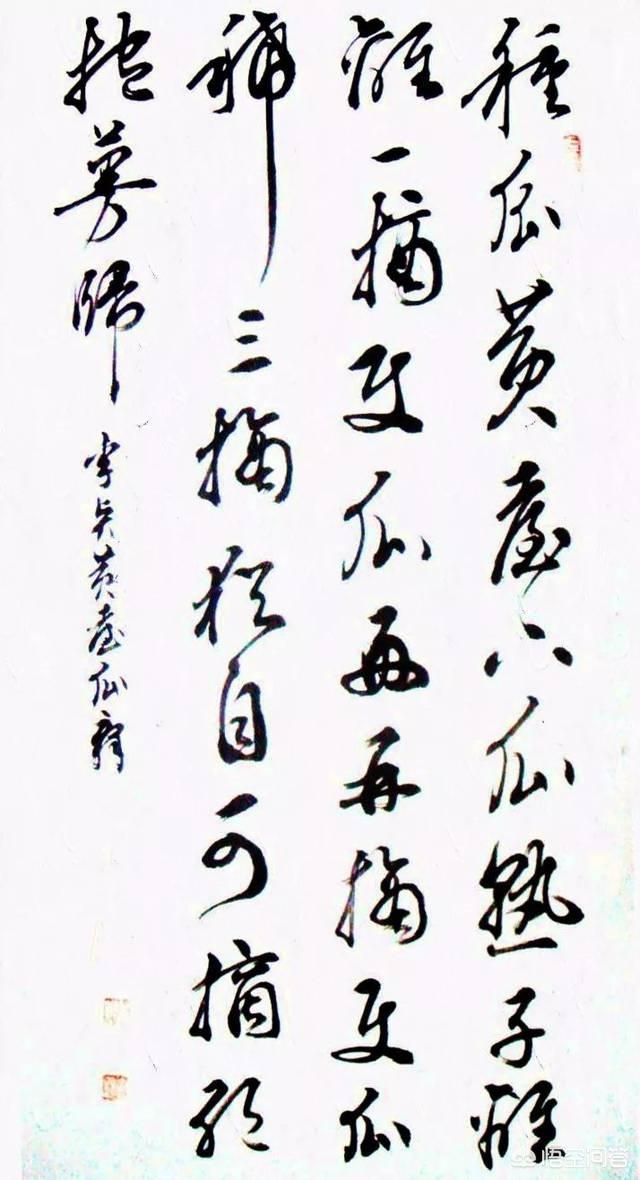 種瓜黃臺下瓜熟子離
離一摘使瓜再再摘使瓜
稀三摘猶自可摘絕
抱蔓歸
李賢黃臺瓜辭
悟空问答